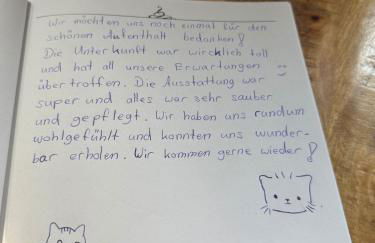 Wir möchten uns noch einmal für den
schönen Aufenthalt bedanken!
Die Unterkunft war wircklich toll
und hat all unsere Erwartungen
übertroffen. Die Ausstattung war
super und alles war sehr sauber
und gepflegt. Wir haben uns rundum
wohlgefühlt und konnten uns wunder-
bar erholen. Wir kommen gerne wieder!